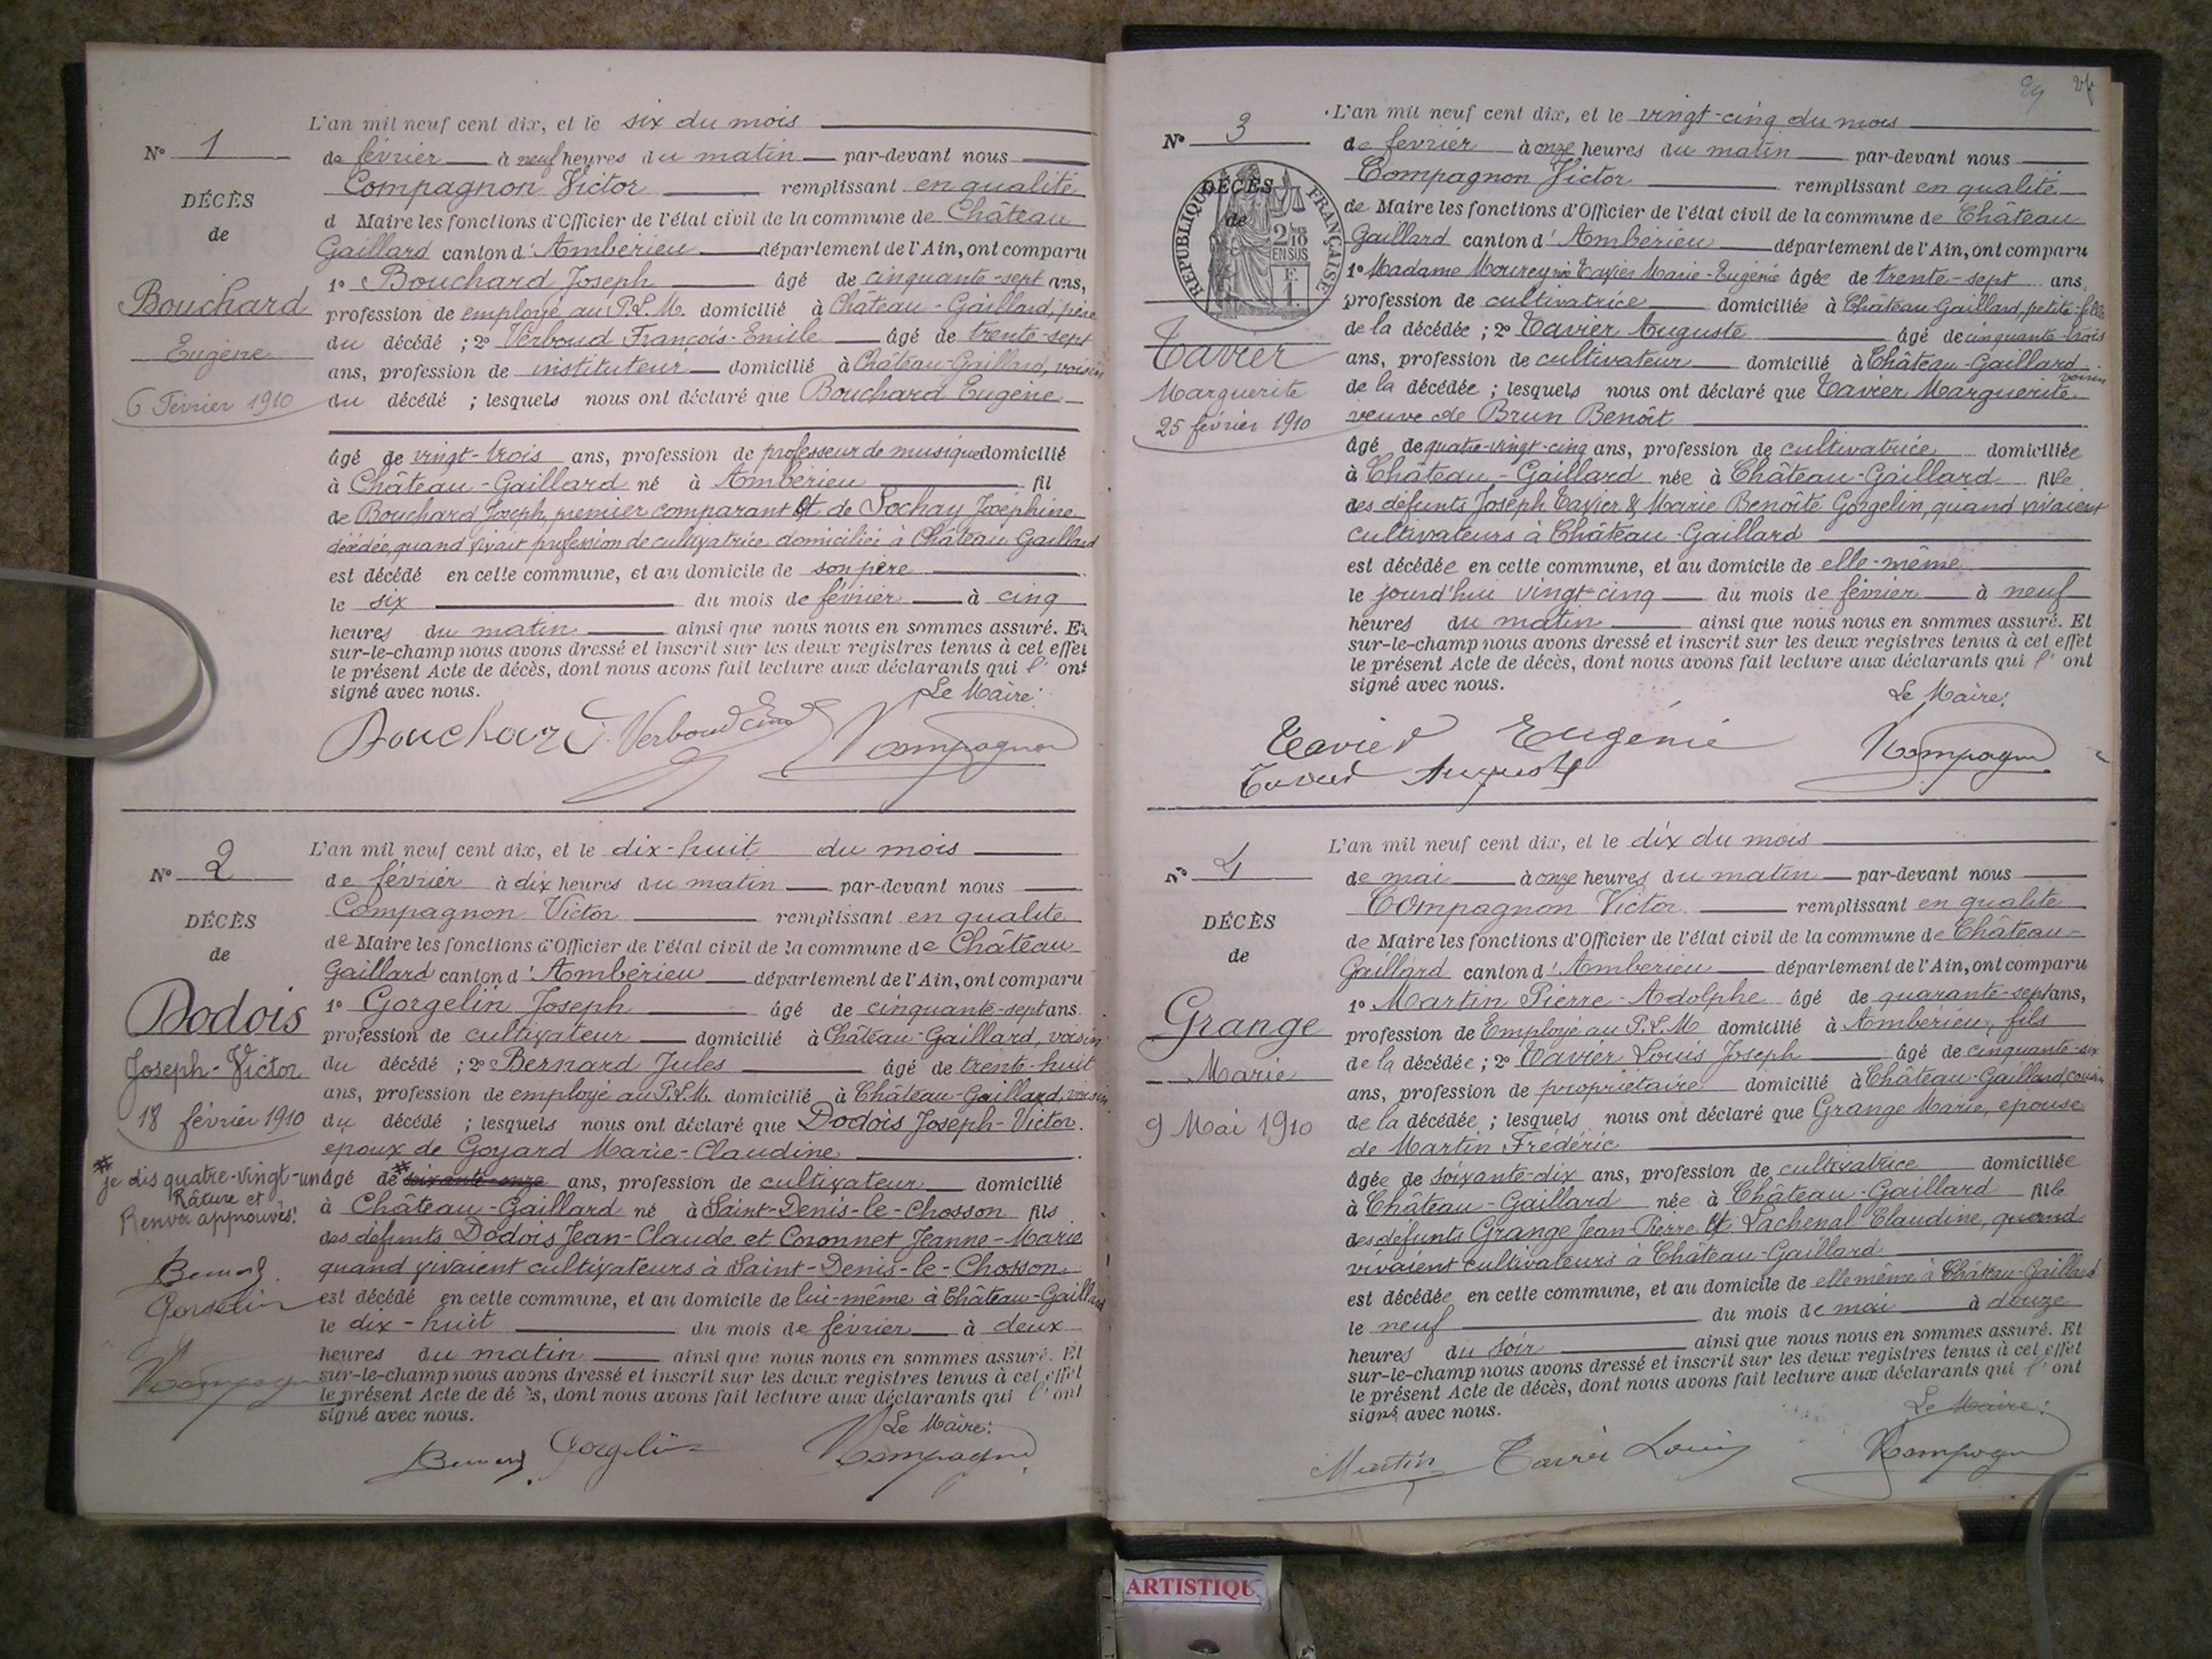 L'an mil neuf cent dix, et le six du mois
N° 1
de février à neuf heures du matin par-devant nous
Compagnon Victor remplissant en qualité
DÉCÈS
d Maire les fonctions d'Officier de l'état civil de la commune de Château
de
Gaillard canton d'Ambérieu département de l'Ain, ont comparu
1° Bouchard Joseph âgé de cinquante-sept ans,
Bouchard
profession de employé au P.L.M. domicilié à Château-Gaillard, père
Eugène
du décédé ; 2° Verboud François-Emile âgé de trente-sept
ans, profession de instituteur domicilié à Château-Gaillard, voisin
6 Février 1910
du décédé ; lesquels nous ont déclaré que Bouchard Eugène
âgé de vingt-trois ans, profession de professeur de musique domicilié
à Château-Gaillard né à Ambérieu fil
de Bouchard Joseph, premier comparant et de Sochay Joséphine
décédée, quand vivait profession de cultivatrice domiciliée à Château Gaillard
est décédé en cette commune, et au domicile de son père
le six du mois de février à cinq
heures du matin ainsi que nous nous en sommes assuré. Et
sur-le-champ nous avons dressé et inscrit sur les deux registres tenus à cet effet
le présent Acte de décès, dont nous avons fait lecture aux déclarants qui l'ont
signé avec nous.
Le Maire:
Bouchard J. Verboud Compagnon
N° 2
L'an mil neuf cent dix, et le dix-huit du mois
de février à dix heures du matin par-devant nous
Compagnon Victor remplissant en qualité
DÉCÈS
de Maire les fonctions d'Officier de l'état civil de la commune de Château
de
Gaillard canton d'Ambérieu département de l'Ain, ont comparu
Dodois
1° Gorgelin Joseph âgé de cinquante-sept ans
profession de cultivateur domicilié à Château-Gaillard, voisin
Joseph-Victor
du décédé ; 2° Bernard Jules âgé de trente-huit
ans, profession de employé au P.L.M. domicilié à Château-Gaillard, voisin
18 février 1910
du décédé ; lesquels nous ont déclaré que Dodois Joseph-Victor.
époux de Goyard Marie-Claudine
# je dis quatre-vingt-un
Râture et
Renvoi approuvés!
Bernard
Gorgelin
Compagnon
âgé de # soixante-onze ans, profession de cultivateur domicilié
à Château-Gaillard né à Saint-Denis-le-Chosson fils
des défunts Dodois Jean-Claude et Coronnet Jeanne-Marie
quand vivaient cultivateurs à Saint-Denis-le-Chosson.
est décédé en cette commune, et au domicile de lui-même à Château-Gaillard
le dix-huit du mois de février à deux
heures du matin ainsi que nous nous en sommes assuré. Et
sur-le-champ nous avons dressé et inscrit sur les deux registres tenus à cet effet
le présent Acte de décès, dont nous avons fait lecture aux déclarants qui l'ont
signé avec nous.
Le Maire:
Bernard Gorgelin Compagnon
29
N° 3
L'an mil neuf cent dix, et le vingt-cinq du mois
de février à onze heures du matin par-devant nous
Compagnon Victor remplissant en qualité
DÉCÈS
de
RÉPUBLIQUE FRANÇAISE
2/10
EN SUS
F.
1.
de Maire les fonctions d'Officier de l'état civil de la commune de Château
Gaillard canton d'Ambérieu département de l'Ain, ont comparu
1° Madame Tavier Marie-Eugénie âgée de trente-sept ans,
profession de cultivatrice domiciliée à Château-Gaillard, petite-fille
de la décédée ; 2° Tavier Auguste âgé de cinquante-trois
Tavier
ans, profession de cultivateur domicilié à Château-Gaillard
voisin
Marguerite
de la décédée ; lesquels nous ont déclaré que Tavier Marguerite
25 février 1910
veuve de Brun Benoît
âgé de quatre-vingt-cinq ans, profession de cultivatrice domiciliée
à Château-Gaillard née à Château-Gaillard fille
des défunts Joseph Tavier & Marie Benoîte Gorgelin, quand vivaient
cultivateurs à Château-Gaillard
est décédée en cette commune, et au domicile de elle-même
le jourd'hui vingt-cinq du mois de février à neuf
heures du matin ainsi que nous nous en sommes assuré. Et
sur-le-champ nous avons dressé et inscrit sur les deux registres tenus à cet effet
le présent Acte de décès, dont nous avons fait lecture aux déclarants qui l'ont
signé avec nous.
Le Maire:
Tavier Eugénie Compagnon
Tavier Auguste
N° 4
L'an mil neuf cent dix, et le dix du mois
de mai à onze heures du matin par-devant nous
Compagnon Victor remplissant en qualité
DÉCÈS
de Maire les fonctions d'Officier de l'état civil de la commune de Château-
de
Gaillard canton d'Ambérieu département de l'Ain, ont comparu
1° Martin Pierre-Adolphe âgé de quarante-sept ans,
Grange
profession de Employé au P.L.M domicilié à Ambérieu, fils
de la décédée ; 2° Tavier Louis Joseph âgé de cinquante-six
Marie
ans, profession de propriétaire domicilié à Château-Gaillard, cousin
9 Mai 1910
de la décédée ; lesquels nous ont déclaré que Grange Marie, épouse
de Martin Frédéric
âgée de soixante-dix ans, profession de cultivatrice domiciliée
à Château-Gaillard née à Château-Gaillard fille
des défunts Grange Jean-Pierre et Lachenal Claudine, quand
vivaient cultivateurs à Château-Gaillard
est décédée en cette commune, et au domicile de elle même à Château-Gaillard
le neuf du mois de mai à douze
heures du soir ainsi que nous nous en sommes assuré. Et
sur-le-champ nous avons dressé et inscrit sur les deux registres tenus à cet effet
le présent Acte de décès, dont nous avons fait lecture aux déclarants qui l'ont
signé avec nous.
Le Maire:
Martin Tavier Louis Compagnon
ARTISTIQU